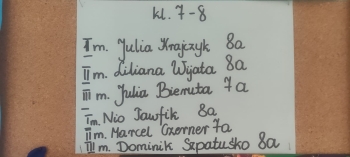 kl. 7-8
I m. Julia Krajczyk 8a
II m. Liliana Wijata 8a
III m. Julia Bienuta 7a
I m. Nio Tawfik 8a
II m. Marcel Czorner 7a
III m. Dominik Szpatuśko 8a